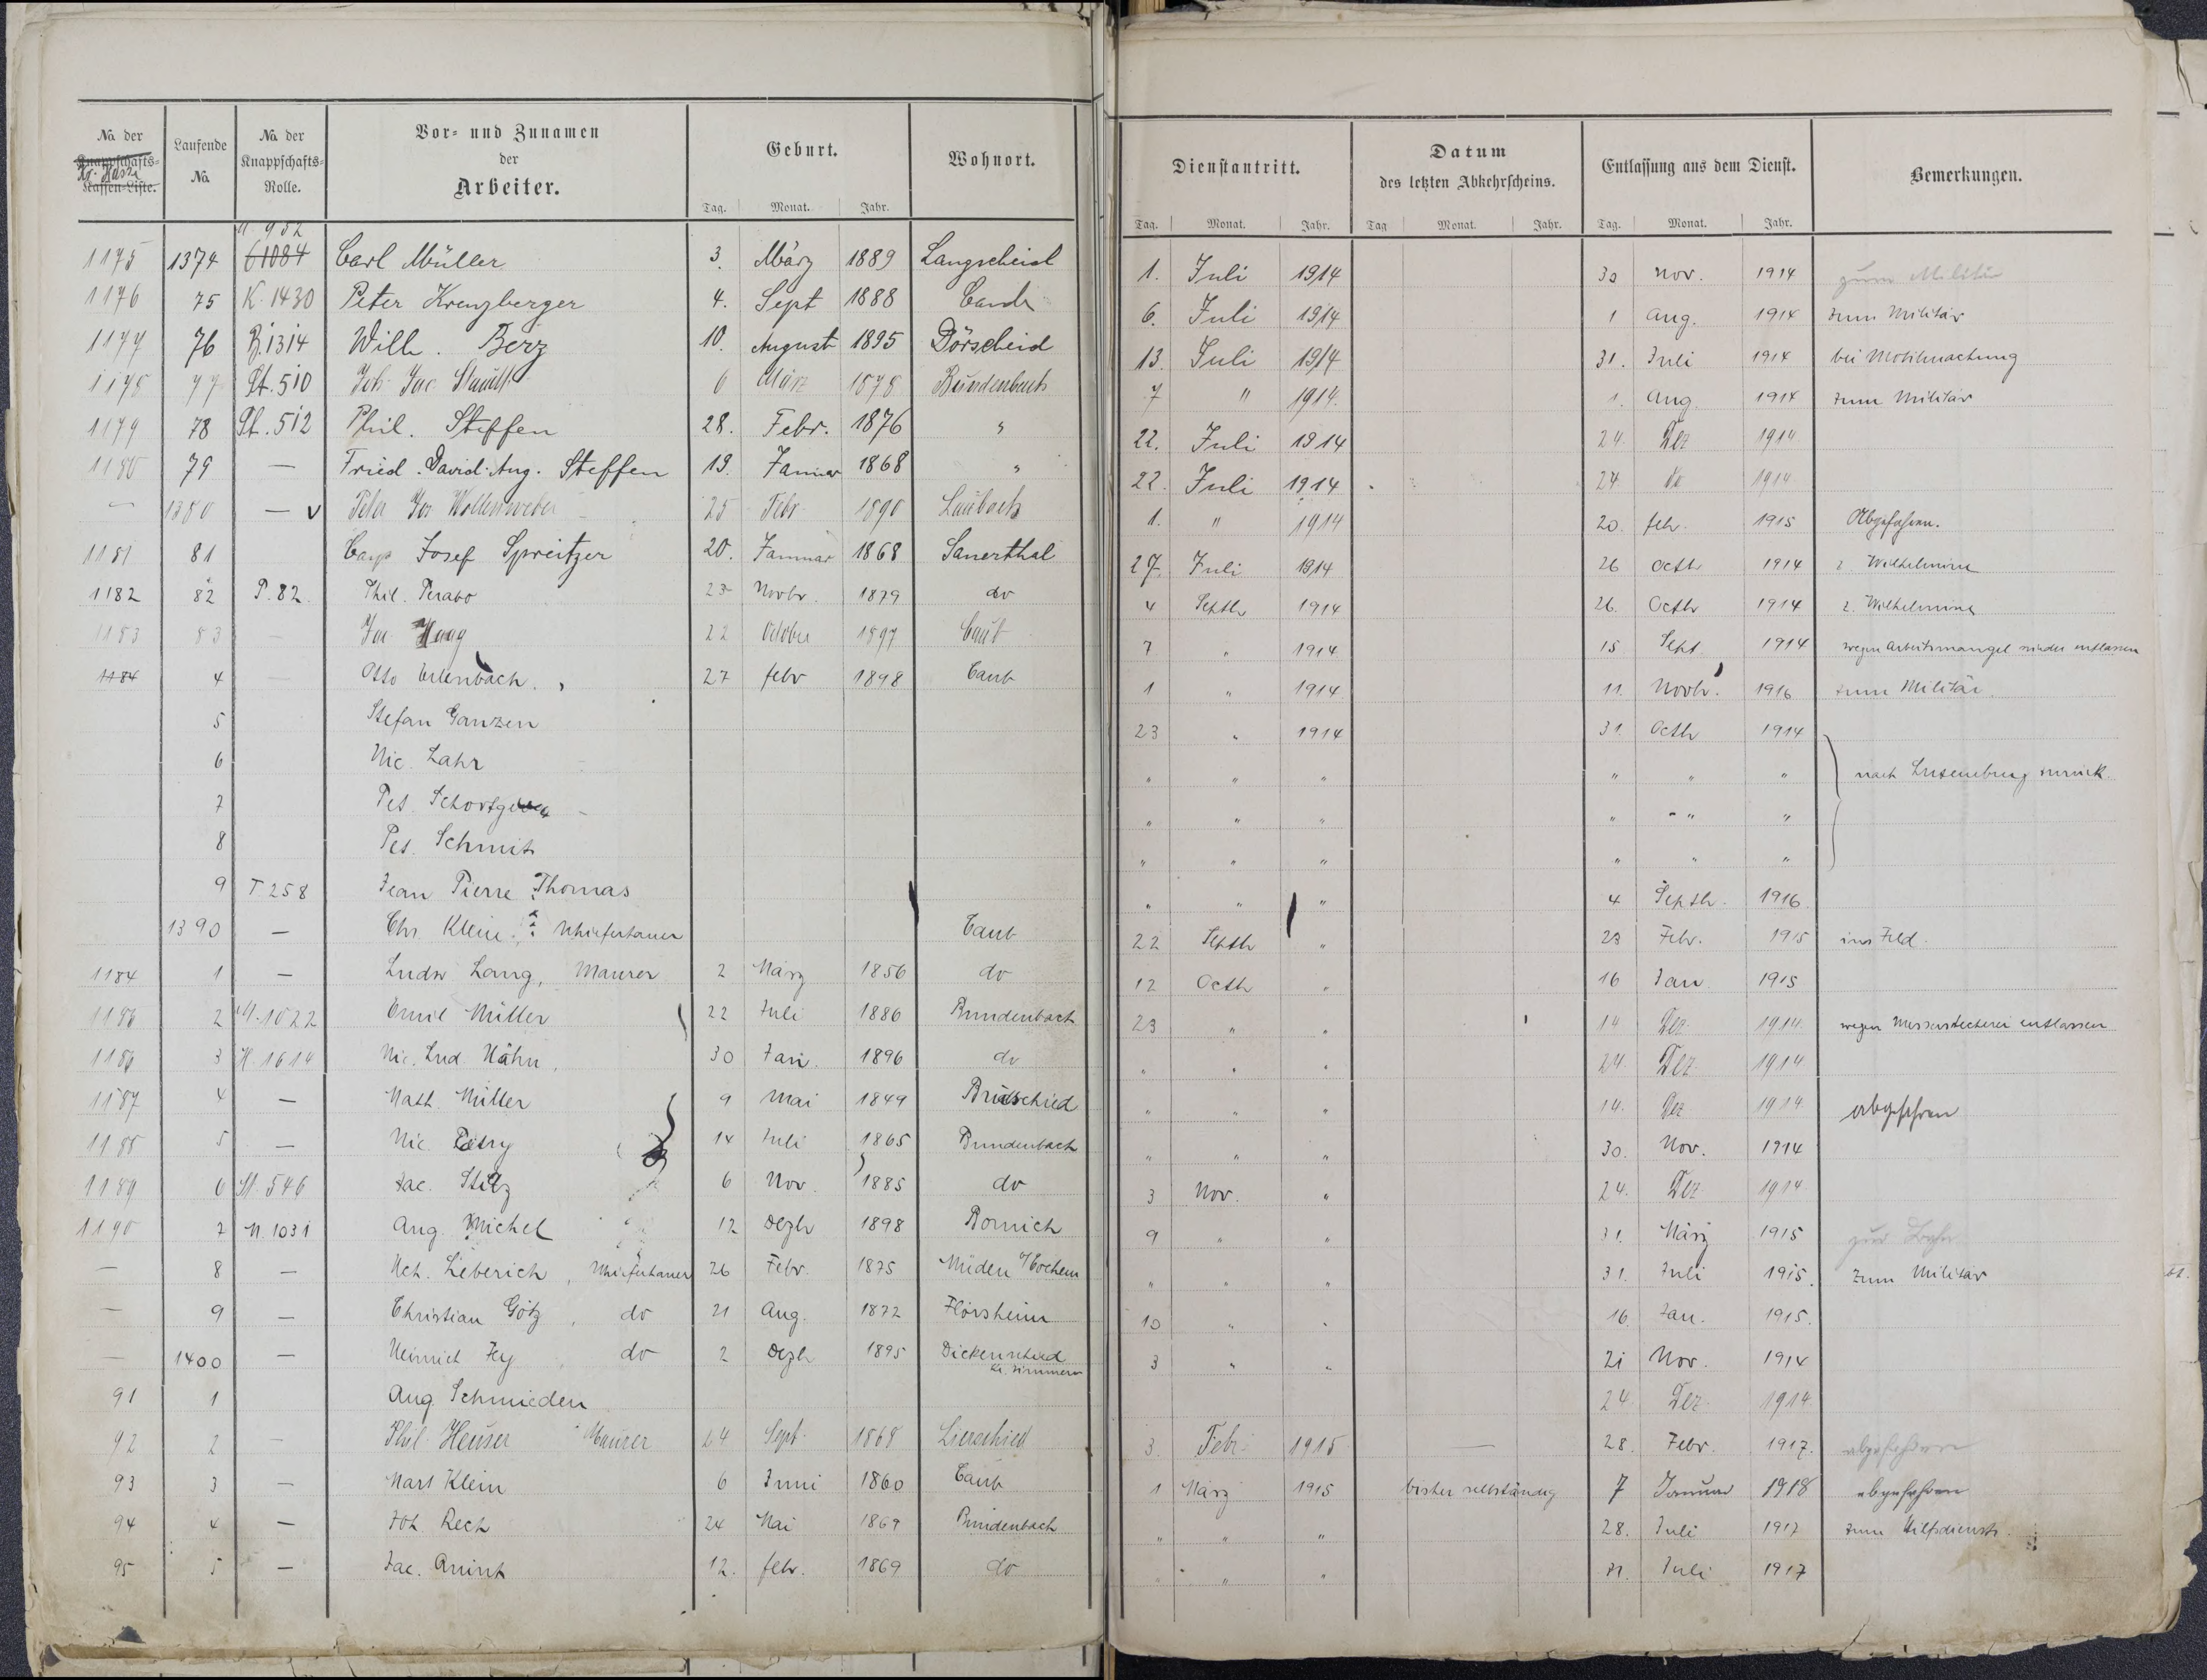 No. der Knappschafts-Kassen-Liste. Laufende No. No. der Knappschafts-Rolle. Vor- und Zunamen der Arbeiter. Geburt. Wohnort. Dienstantritt. Datum des letzten Abkehrscheins. Entlassung aus dem Dienst. Bemerkungen.
Tag. Monat. Jahr. Tag. Monat. Jahr. Tag Monat. Jahr. Tag. Monat. Jahr.
M. 952
1175 1374 61084 Carl Müller 3. März 1889 Langscheid 1. Juli 1914 30 Nov. 1914 zum Militär
1176 75 K. 1430 Peter Kreuzberger 4. Sept 1888 Caub 6. Juli 1914 1 Aug. 1914 zum Militär
1177 76 B. 1314 Wilh. Berz 10. August 1895 Dörscheid 13. Juli 1914 31. Juli 1914 bei Mobilmachung
1178 77 St. 510 Joh. Jac. 6 März 1878 Bundenbach 7 " 1914. 1. Aug. 1914 zum Militär
1179 78 St. 512 Phil. Steffen 28. Febr. 1876 " 22. Juli 1914 24. Dez 1914
1180 79 — Fried. David. Aug. Steffen 19. Januar 1868 " 22. Juli 1914 24 1914
— 1380 — v Peter Jos. Wollenweber 25 Febr 1890 Laubach 1. " 1914 20. feb. 1915 Abgefahren.
1181 81 Josef Spreitzer 20. Januar 1868 Sauerthal 27. Juli 1914 26 Octb 1914 z. Wilhelmine
1182 82 P. 82. Phil. Perabo 23 Novbr. 1879 do 4 Septb 1914 26. Octb 1914 z. Wilhelmine
1183 83 — Jac. Haag 22 October 1897 Caub 7 " 1914 15 Sept 1914 wegen Arbeitsmangel wieder entlassen
1184 4 — Otto Erlenbach. 27 febr 1898 Caub 1 " 1914 11. Novb. 1916 zum Militär.
5 Stefan Ganzen 23 " 1914 31. Octb 1914
6 Nic. Lahr " " " " " " nach Luxemburg zurück.
7 Pet. " " " " " "
8 Pet. Schmit " " " " " "
9 T 258 Jean Pierre Thomas " " " 4 Septb. 1916.
1390 — Chr. Klein. Caub 22 Septb " 23 Febr. 1915 ins Feld.
1184 1 — Ludw Lang, Maurer. 2 März 1856 do 12 Octb " 16 Jan 1915
1186 2 M. 1022 Emil Müller 22 Juli 1886 Bundenbach 23 " " 14 Dez. 1914. wegen Messerstecherei entlassen
1186 3 H. 1614 Nic. Lud. Hähn. 30 Jan. 1896 do " " " 24. Dez. 1914
1187 4 — Math. Müller 9 Mai 1849 " " " 14. Dez 1914 abgefahren
1188 5 — Nic. Petry 14 Juli 1865 Bundenbach " " " 30. Nov. 1914
1189 6 St. 546 Jac. Stilz 6 Nov. 1885 do 3 Nov. " 24. Dez 1914
1190 7 M. 1031 Aug. Michel 12 Dezb 1898 Bornich 9 " " 31. März 1915 zur Bahn
— 8 — Mch. Lieberich, 26 Febr. 1875 Müden a/ Cochem " " " 31. Juli 1915. zum Militär
— 9 — Christian Götz, do 21 Aug. 1872 Flörsheim 10 " " 16. Jan. 1915.
— 1400 — Heinrich Fey, do 2 Dezb 1895 Dickenschied Kr. Simmern 3 " " 21 Nov. 1914
91 1 Aug. Schmieden 24 Dez. 1914
92 2 — Phil. Heuser Maurer 24 Sept. 1868 Lierschied 3. Febr. 1915 — 28. Febr. 1917. abgefahren
93 3 — Mart Klein 6 Juni 1860 Caub 1 März 1915 bisher selbständig 7 Januar 1918 abgefahren
94 4 — Joh. Rech 24 Mai 1869 Bundenbach " " " 28. Juli 1917 zum Hilfsdienst.
95 5 — Jac. 12. febr. 1869 do " " " 31. Juli 1917